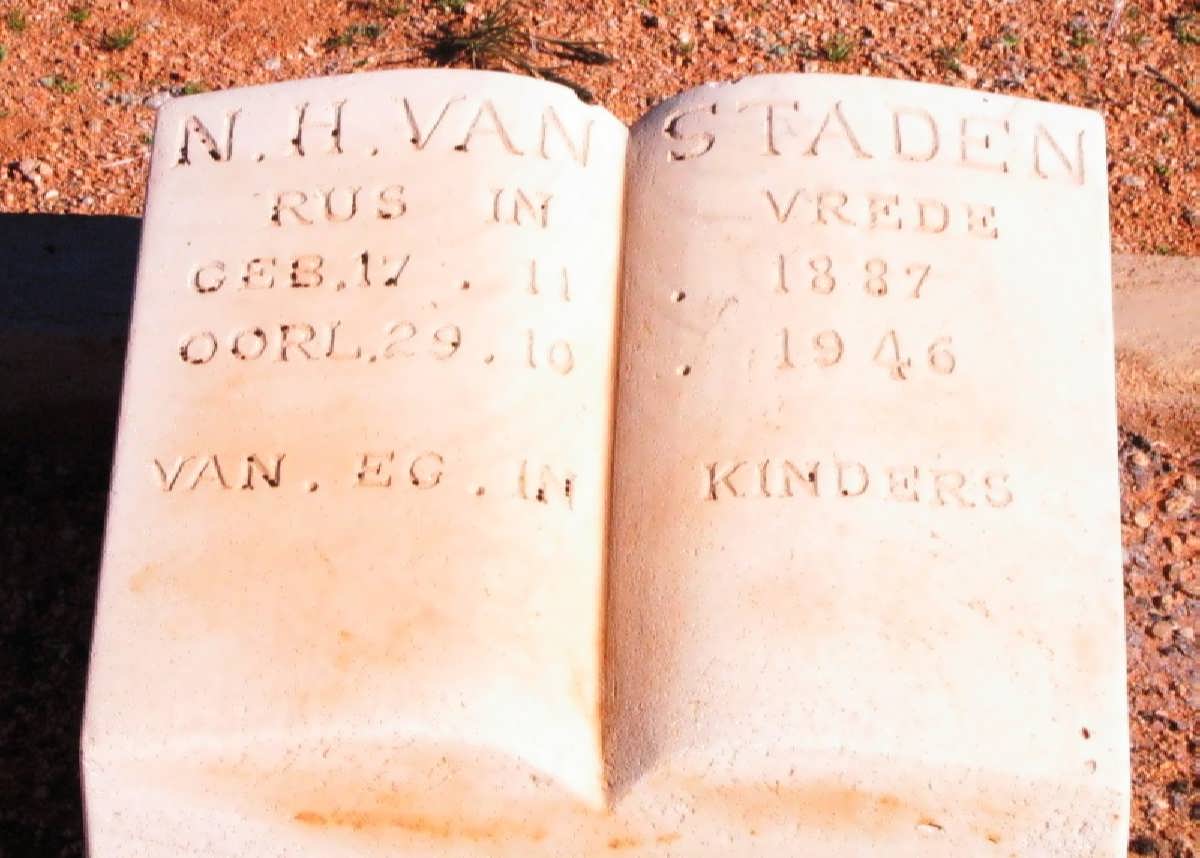 N.H.VAN STADEN
RUS IN VREDE
GEB.17.11.1887
OORL.29.10.1946
VAN.EG.IN KINDERS